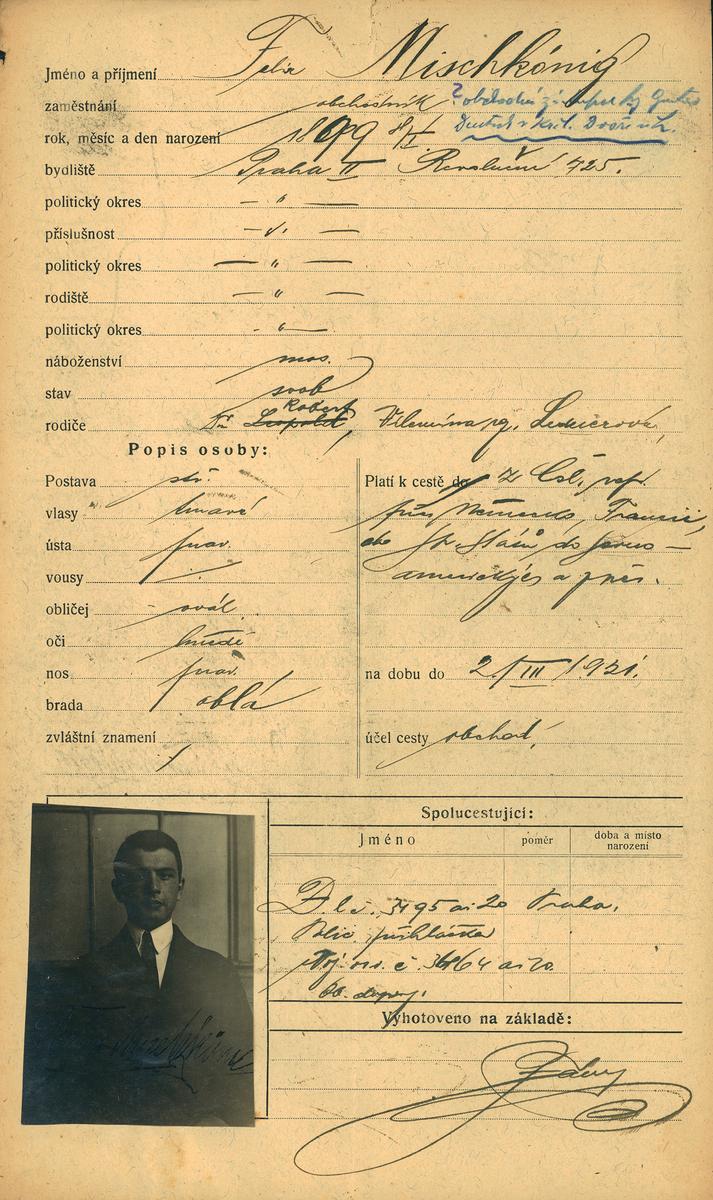 Jméno a příjmení Felix Mischkönig
zaměstnání obchodník ?
rok, měsíc a den narození 1899
bydliště Praha II Revoluční 725.
politický okres — „ —
příslušnost — „ —
politický okres — „ —
rodiště — „ —
politický okres - „ —
náboženství mos.
stav svob
rodiče Dr Leopold Robert, Vilemína
Popis osoby:
Postava stř.
vlasy tmavé
ústa prav.
vousy ·/.
obličej ovál.
oči hnědé
nos prav.
brada oblá
zvláštní znamení
/
Platí k cestě do z Čsl. rep.
přes Německo, Francii,
do Sp. Států do Severo —
amerických a zpět.
na dobu do 2./III 1921.
účel cesty obchod.
Spolucestující:
Jméno poměr doba a místo narození
D. l. č. 3495 ai 20 Praha.
Polic. přihláška
Voj. osv. č. ai 20.
Vyhotoveno na základě: